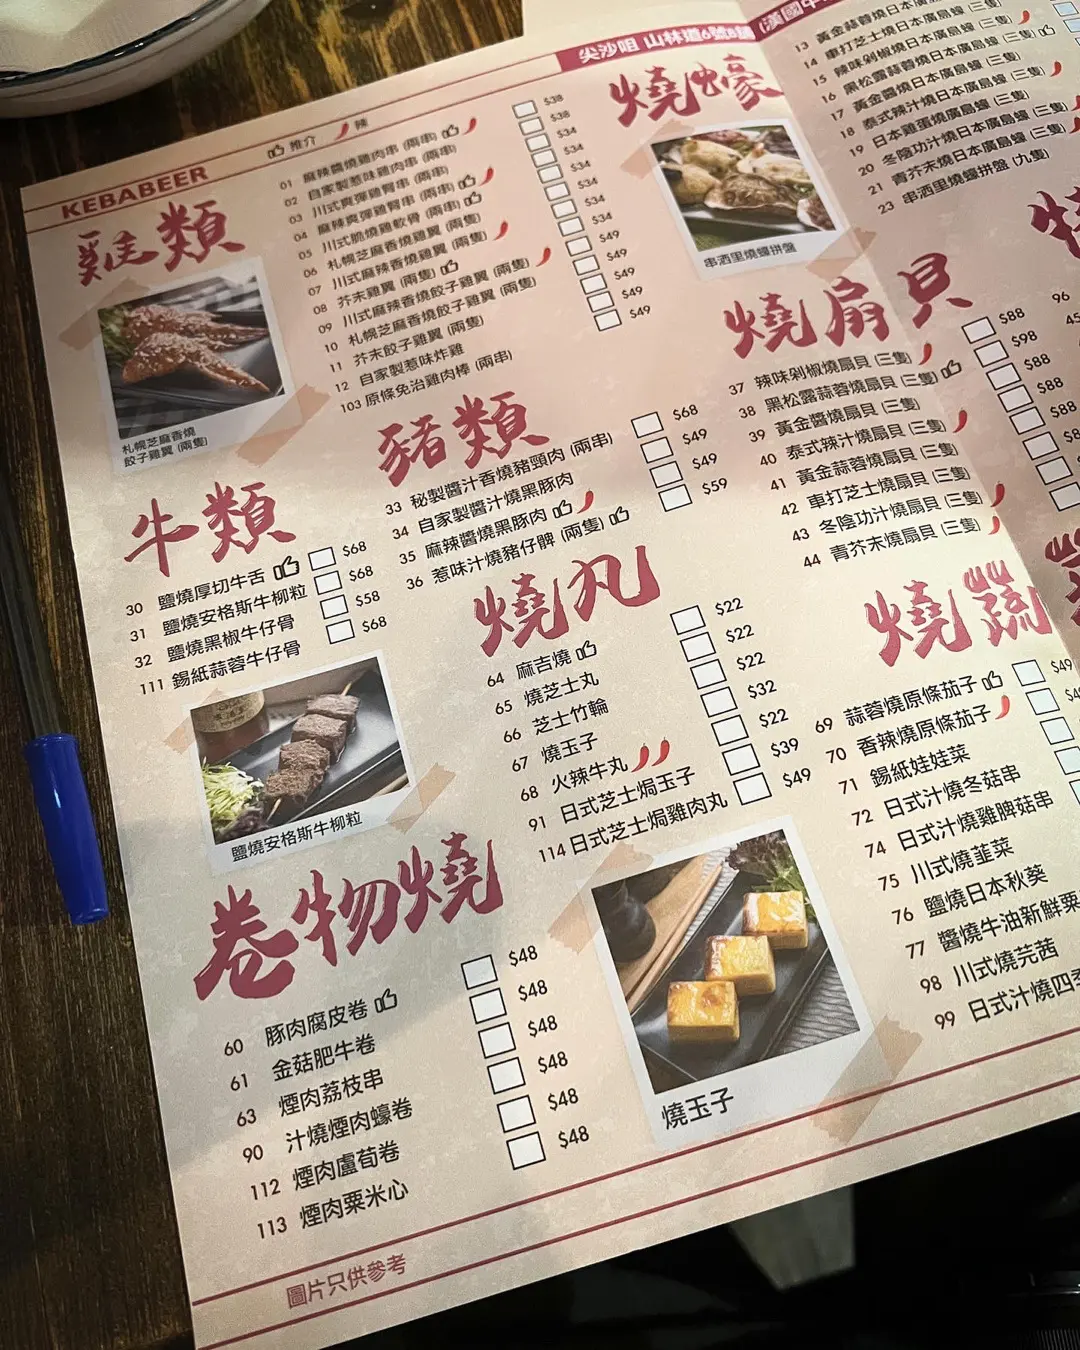 KEBABEER
尖沙咀 山林道6號B舖 (漢國中
推介 辣
雞類
01 麻辣醬燒雞肉串 (兩串) $38
02 自家製惹味雞肉串 (兩串) $38
03 川式爽彈雞腎串 (兩串) $34
04 麻辣爽彈雞腎串 (兩串) $34
05 川式脆燒雞軟骨 (兩串) $34
06 札幌芝麻香燒雞翼 (兩隻) $34
07 川式麻辣香燒雞翼 (兩隻) $34
08 芥末雞翼 (兩隻) $49
09 川式麻辣香燒餃子雞翼 (兩隻) $49
10 札幌芝麻香燒餃子雞翼 (兩隻) $49
11 芥末餃子雞翼 (兩隻) $49
12 自家製惹味炸雞
103 原條免治雞肉棒 (兩串)
札幌芝麻香燒
餃子雞翼 (兩隻)
牛類
30 鹽燒厚切牛舌 $68
31 鹽燒安格斯牛柳粒 $68
32 鹽燒黑椒牛仔骨 $58
111 錫紙蒜蓉牛仔骨 $68
鹽燒安格斯牛柳粒
豬類
33 秘製醬汁香燒豬頸肉 (兩串) $68
34 自家製醬汁燒黑豚肉 $49
35 麻辣醬燒黑豚肉 $49
36 惹味汁燒豬仔髀 (兩隻) $59
燒丸
64 麻吉燒 $22
65 燒芝士丸 $22
66 芝士竹輪 $22
67 燒玉子 $32
68 火辣牛丸 $22
91 日式芝士焗玉子 $39
114 日式芝士焗雞肉丸 $49
燒玉子
卷物燒
60 豚肉腐皮卷 $48
61 金菇肥牛卷 $48
63 煙肉荔枝串 $48
90 汁燒煙肉蠔卷 $48
112 煙肉盧荀卷 $48
113 煙肉粟米心 $48
圖片只供參考
燒蠔
串酒里燒蠔拼盤
13 黃金蒜蓉燒日本廣島蠔
14 車打芝士燒日本廣島蠔 (三隻)
15 辣味剁椒燒日本廣島蠔 (三隻)
16 黑松露蒜蓉燒日本廣島蠔 (三隻)
17 黃金醬燒日本廣島蠔 (三隻)
18 泰式辣汁燒日本廣島蠔 (三隻)
19 日本雞蛋燒廣島蠔 (三隻)
20 冬陰功汁燒日本廣島蠔 (三隻)
21 青芥末燒日本廣島蠔 (三隻)
23 串酒里燒蠔拼盤 (九隻)
燒扇貝
37 辣味剁椒燒扇貝 (三隻) $88
38 黑松露蒜蓉燒扇貝 (三隻) $98
39 黃金醬燒扇貝 (三隻) $88
40 泰式辣汁燒扇貝 (三隻) $88
41 黃金蒜蓉燒扇貝 (三隻) $88
42 車打芝士燒扇貝 (三隻)
43 冬陰功汁燒扇貝 (三隻)
44 青芥末燒扇貝 (三隻)
96
燒蔬
69 蒜蓉燒原條茄子 $49
70 香辣燒原條茄子
71 錫紙娃娃菜
72 日式汁燒冬菇串
74 日式汁燒雞髀菇串
75 川式燒韮菜
76 鹽燒日本秋葵
77 醬燒牛油新鮮粟
98 川式燒芫茜
99 日式汁燒四季